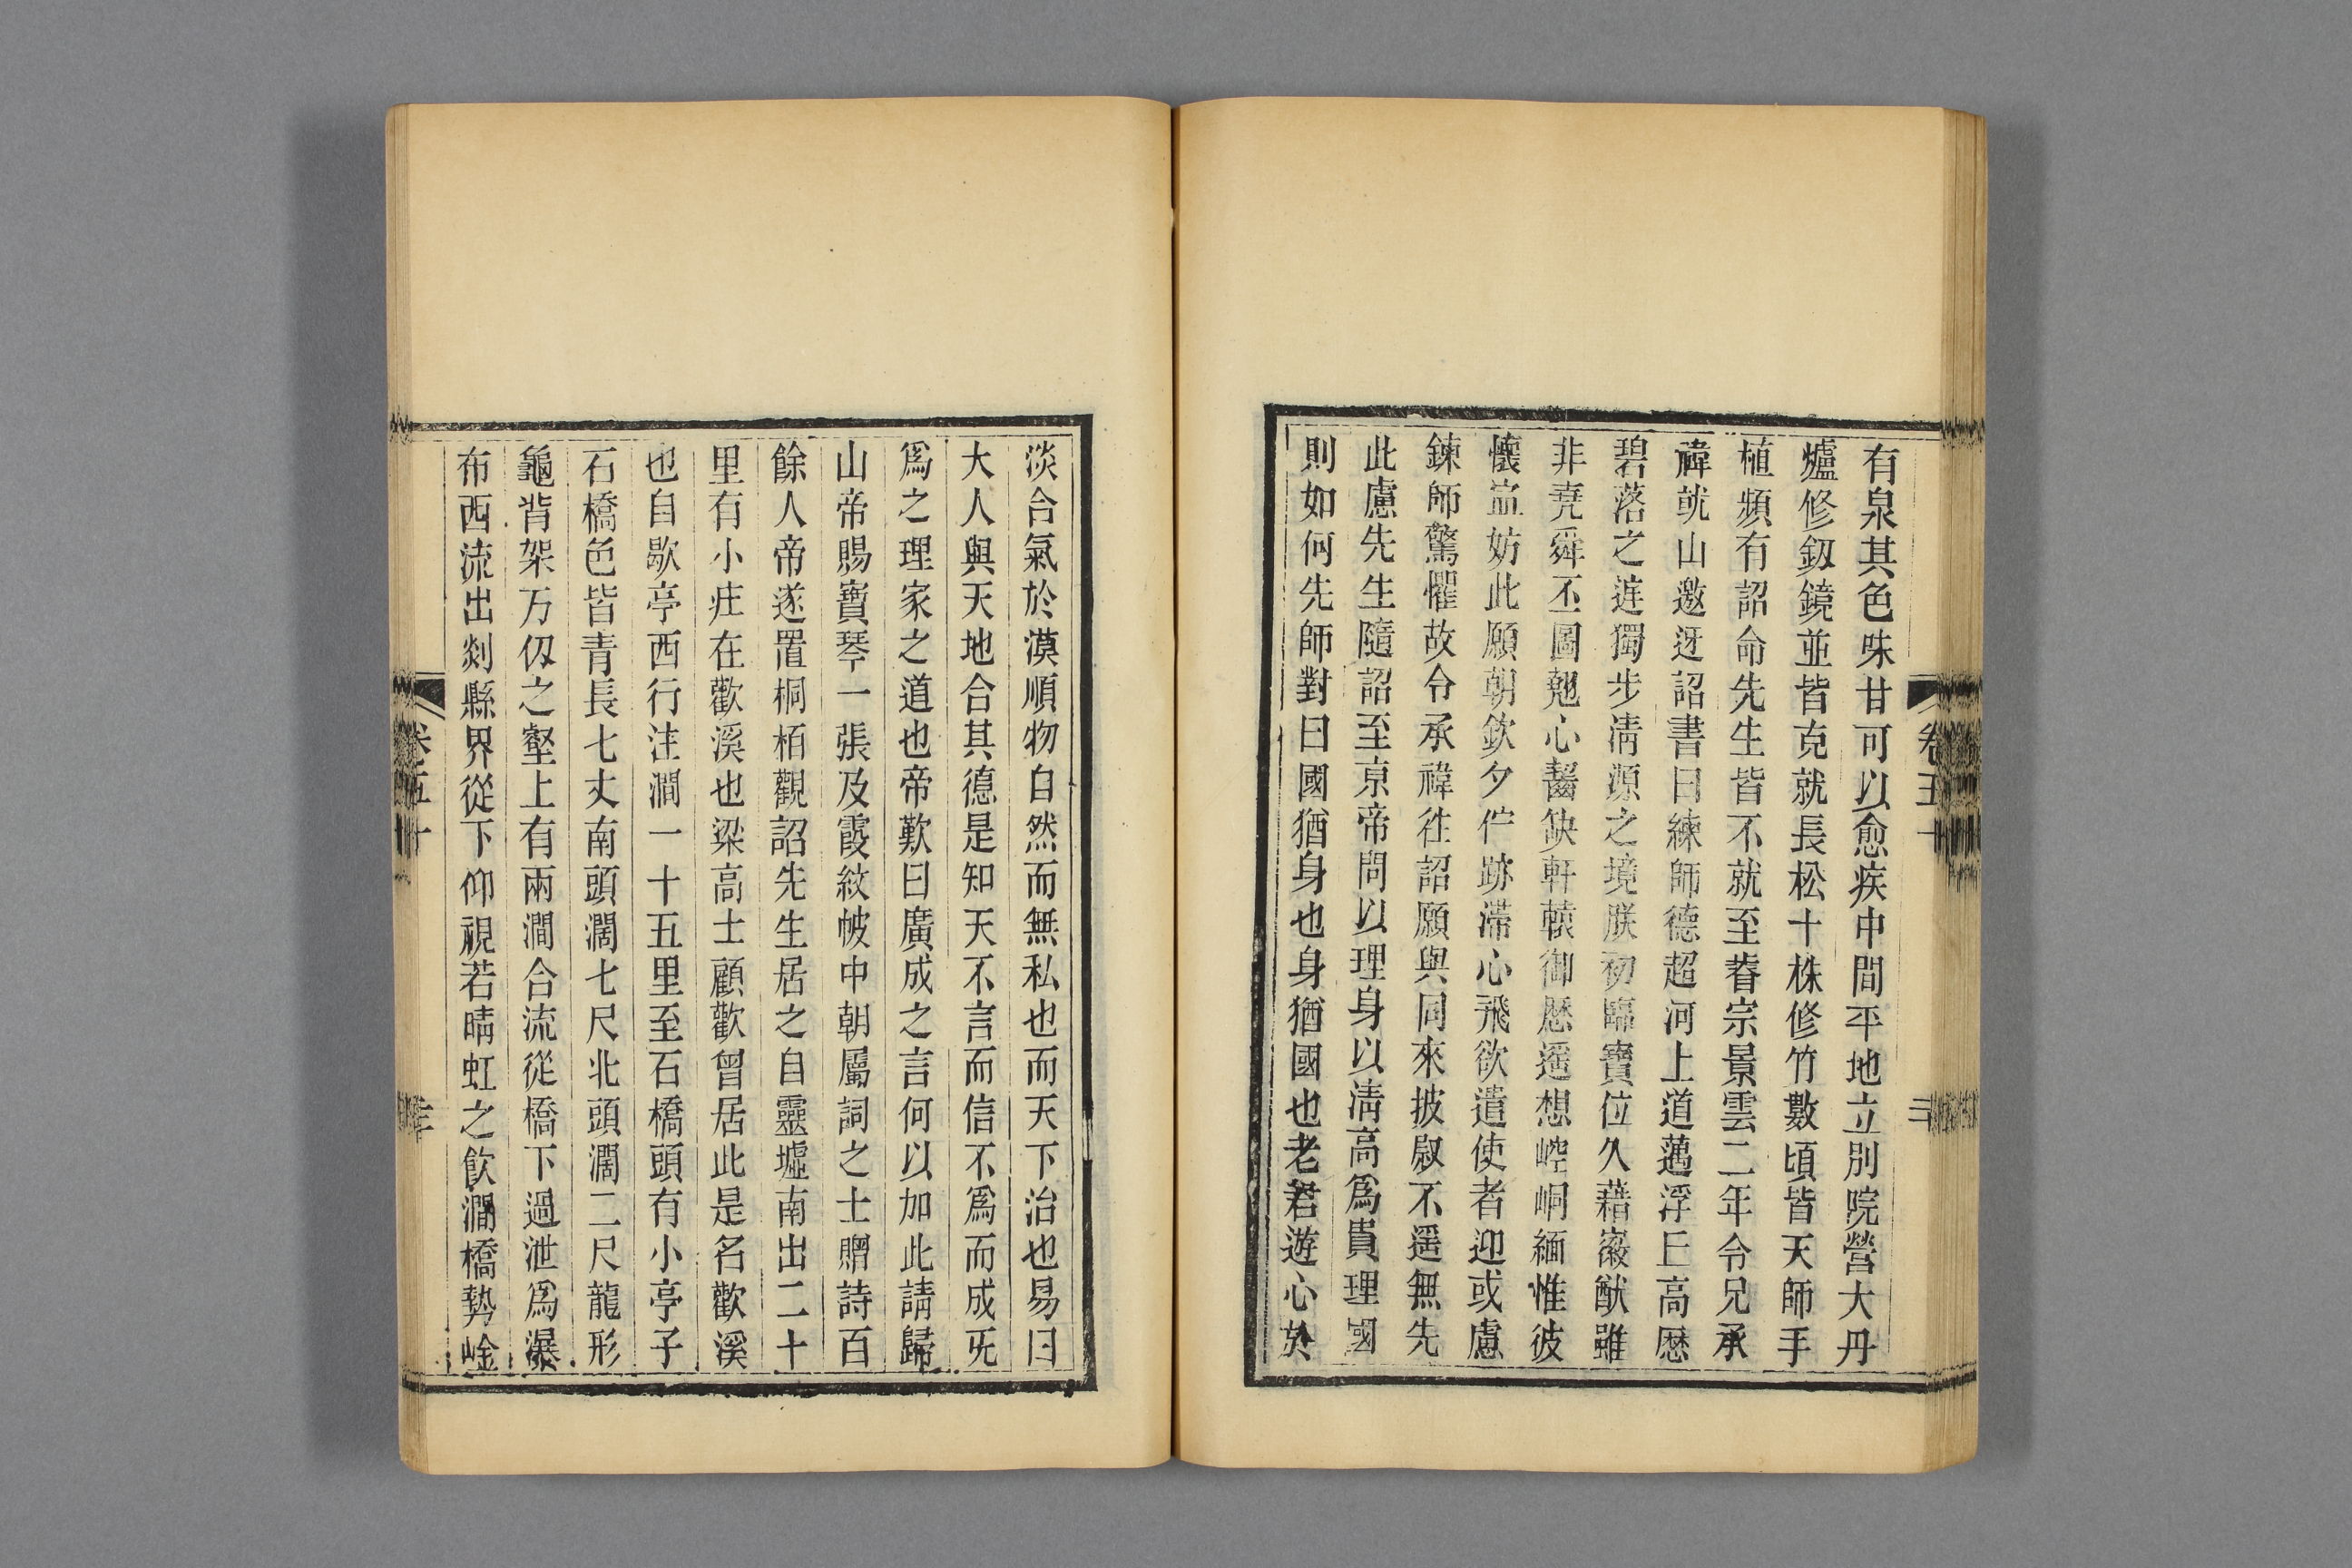 有泉其色味甘可以愈疾中間平地立別院營大丹
爐修釼鏡並皆克就長松十株修竹數頃皆天師手
植頻有詔命先生皆不就至睿宗景雲二年令兄承
禕就山邀迓詔書曰練師德超河上道邁浮丘高歷
碧落之庭獨步淸源之境朕初臨寶位久藉徽猷雖
非堯舜丕圖翹心齧缺軒轅御歷遥想崆峒緬惟彼
懷寍妨此願朝欽夕佇跡滯心飛欲遣使者迎或慮
鍊師驚懼故令承禕往詔願與同來披敍不遥無先
此慮先生隨詔至京帝問以理身以淸高爲貴理國
則如何先師對曰國猶身也身猶國也老君遊心於
淡合氣於漠順物自然而無私也而天下治也易曰
大人與天地合其德是知天不言而信不爲而成旡
爲之理家之道也帝歎曰廣成之言何以加此請歸
山帝賜寶琴一張及霞紋帔中朝屬詞之士贈詩百
餘人帝遂置桐栢觀詔先生居之自靈墟南出二十
里有小庄在歡溪也梁高士顧歡曾居此是名歡溪
也自歇亭西行注澗一十五里至石橋頭有小亭子
石橋色皆青長七丈南頭濶七尺北頭濶二尺龍形
龜背架万仭之壑上有兩澗合流從橋下過泄爲瀑
布西流出剡縣界從下仰視若晴虹之飲澗橋勢崯
卷五十